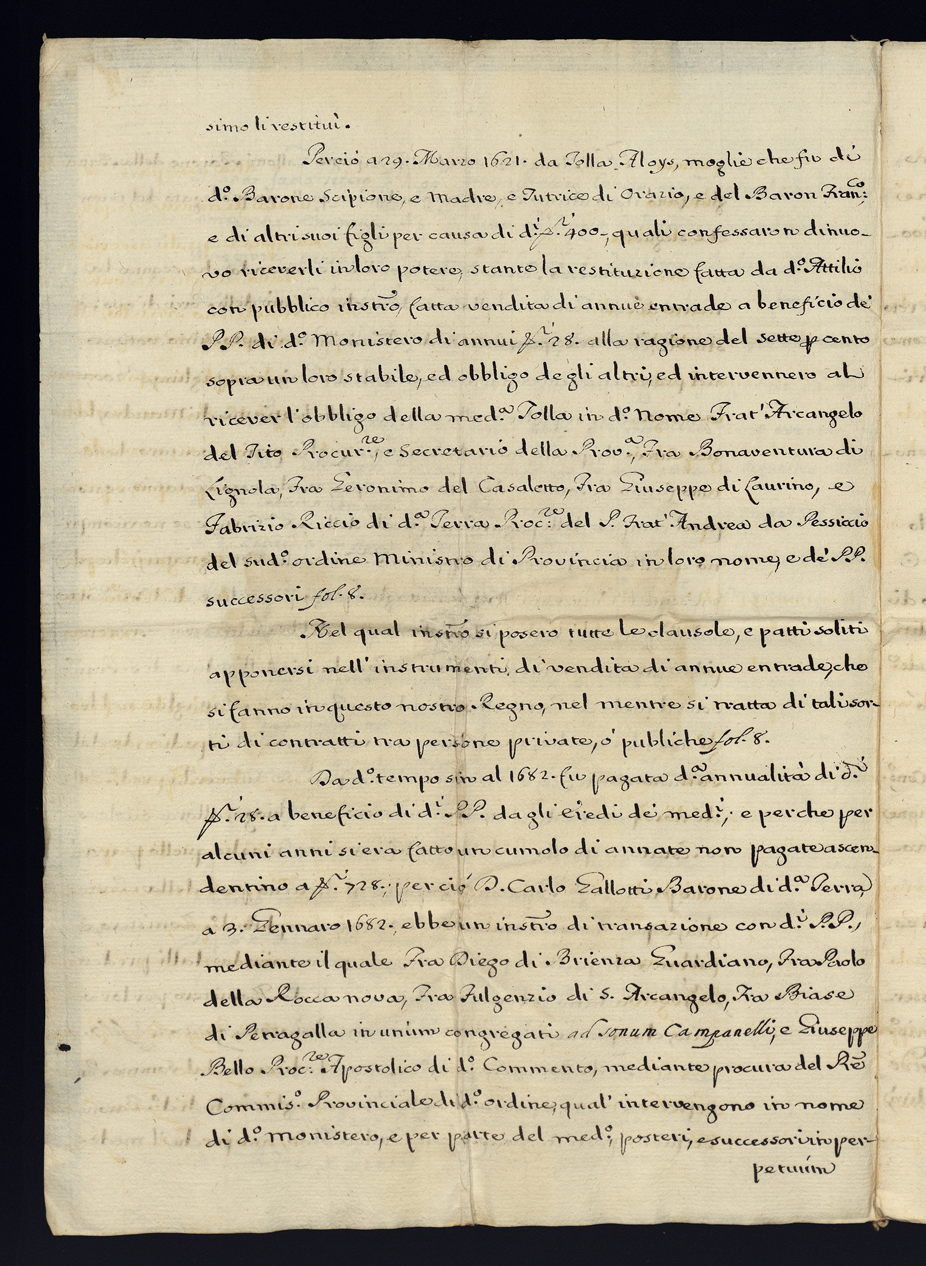 simo li restituì.
Perciò a 29. Marzo 1621. da Tolla Aloys, moglie che fu di
d.º Barone Scipione, e Madre, e Tutrice di Orazio, e del Baron Fran:co,
e di altri suoi figli per causa di d.i 400, quali confessaron di nuo-
vo riceverli in loro potere, stante la restituzione fatta da d.º Attilio
con pubblico instro, fatta vendita di annue entrade a beneficio de'
PP. di d.º Monistero di annui 28. alla ragione del sette p cento
sopra un loro stabile, ed obbligo degli altri, ed intervennero al
ricever l'obbligo della med.a Tolla in d.º Nome Frat' Arcangelo
del Tito Procur.re, e Secretario della Prov.a, Fra Bonaventura di
Lignola, Fra Geronimo del Casaletto, Fra Giuseppe di Laurino, e
Fabrizio Riccio di d.a Terra Proc:re del P. Frat' Andrea da Pessicio
del sud.º ordine Ministro di Provincia in loro nome, e de' P.P.
successori fol. 8.
Nel qual instro si posero tutte le clausole, e patti soliti
apponersi nell'instrumenti di vendita di annue entrade, che
si fanno in questo nostro Regno, nel mentre si tratta di tali sor-
ti di contratti tra persone private, o' publiche fol. 8.
Da d.º tempo sin al 1682. fu pagata d.a annualità di d.i
28. a beneficio di d.i P.P. dagli Eredi de' med.i; e perche per
alcuni anni si era fatto un cumolo di annate non pagate ascen-
dentino a 728., perciò D. Carlo Gallotti Barone di d.a Terra,
a 3. Gennaro 1682., ebbe un instro di transazione con d.i P.P.,
mediante il quale Fra Diego di Brienza Guardiano, Fra Paolo
della Rocca nova, Fra Fulgenzio di S. Arcangelo, Fra Biase
di Petragalla in unùm congregati ad sonum Campanelli, e Giuseppe
Bello Proc:re Apostolico di d.º Commento, mediante procura del Re
Commis.º Provinciale di d.º ordine, qual' intervengono in nome
di d.º Monistero, e per parte del med.º, posteri, e successori in per-
petuùm